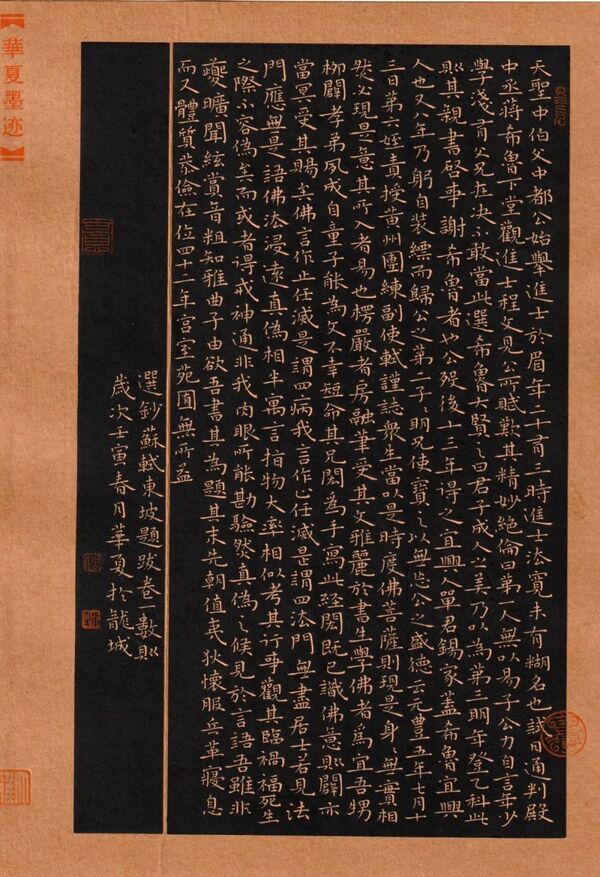 天聖中伯父中都公始舉進士於眉年二十有三時進士法寬未有糊名也試日通判殿
中丞蔣希魯下堂觀進士程文見公所賦歎其精妙絕倫曰第一人無以易子公力自言年少
學淺有父兄在决不敢當此選希魯大賢之曰君子成人之美乃以為第三明年登乙科此
則其親書啓事謝希魯者也公歿後十三年得之宜興人單君錫家蓋希魯宜興
人也又八年乃躬自裝縹而歸公之第二子子明兄使寶之以無忘公之盛德云元豐五年七月十
三日第六姪責授黃州團練副使軾謹誌眾生當以是時度佛菩薩則現是身身無實相
然必現是意其所入者易也楞嚴者房融筆受其文雅麗於書生學佛者為宜吾甥
柳闢孝弟夙成自童子能為文不幸短命其兄閎為手寫此經閎既已識佛意則闢亦
當冥受其賜矣佛言作止任滅是謂四病我言作止任滅是謂四法門無盡居士若見法
門應無是語佛法浸遠真偽相半寓言指物大率相似考其行事觀其臨禍福死生
之際不容偽矣而或者得戒神通非我肉眼所能勘驗然真偽之候見於言語吾雖非
夔曠聞絃賞音粗知雅曲子由欲吾書其為題其末先朝值夷狄懷服兵革寢息
而又體質恭儉在位四十一年宮室苑囿無所益
選鈔蘇軾東坡題跋卷一數則
歲次壬寅春月華夏於龍城
【華夏墨迹】